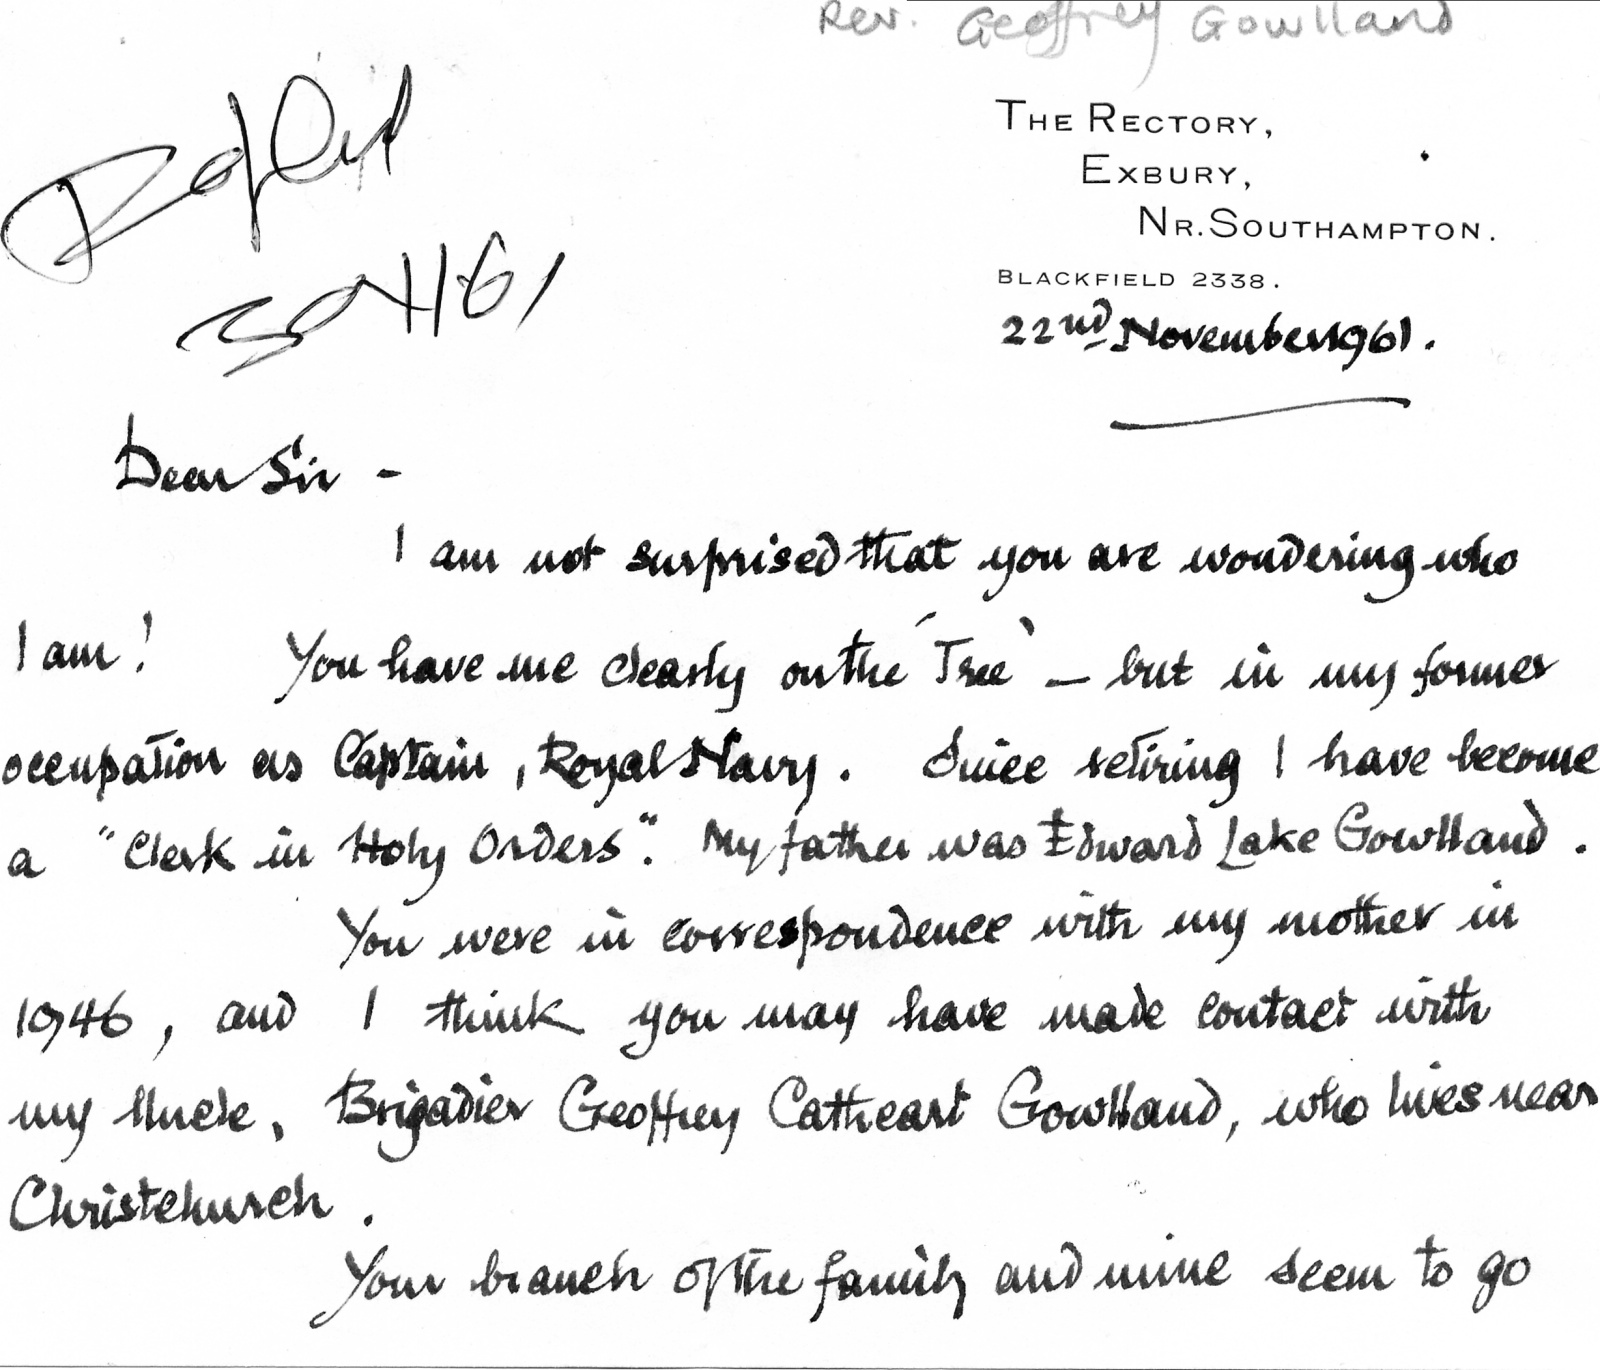 Rev. Geoffrey Gowlland
THE RECTORY,
EXBURY,
NR. SOUTHAMPTON.
BLACKFIELD 2338.
22nd November 1961.
Dear Sir -
I am not surprised that you are wondering who
I am! You have me clearly on the 'Tree' — but in my former
occupation as Captain, Royal Navy. Since retiring I have become
a "Clerk in Holy Orders". My father was Edward Lake Gowlland.
You were in correspondence with my mother in
1946, and I think you may have made contact with
my Uncle, Brigadier Geoffrey Cathcart Gowlland, who lives near
Christchurch.
Your branch of the family and mine seem to go